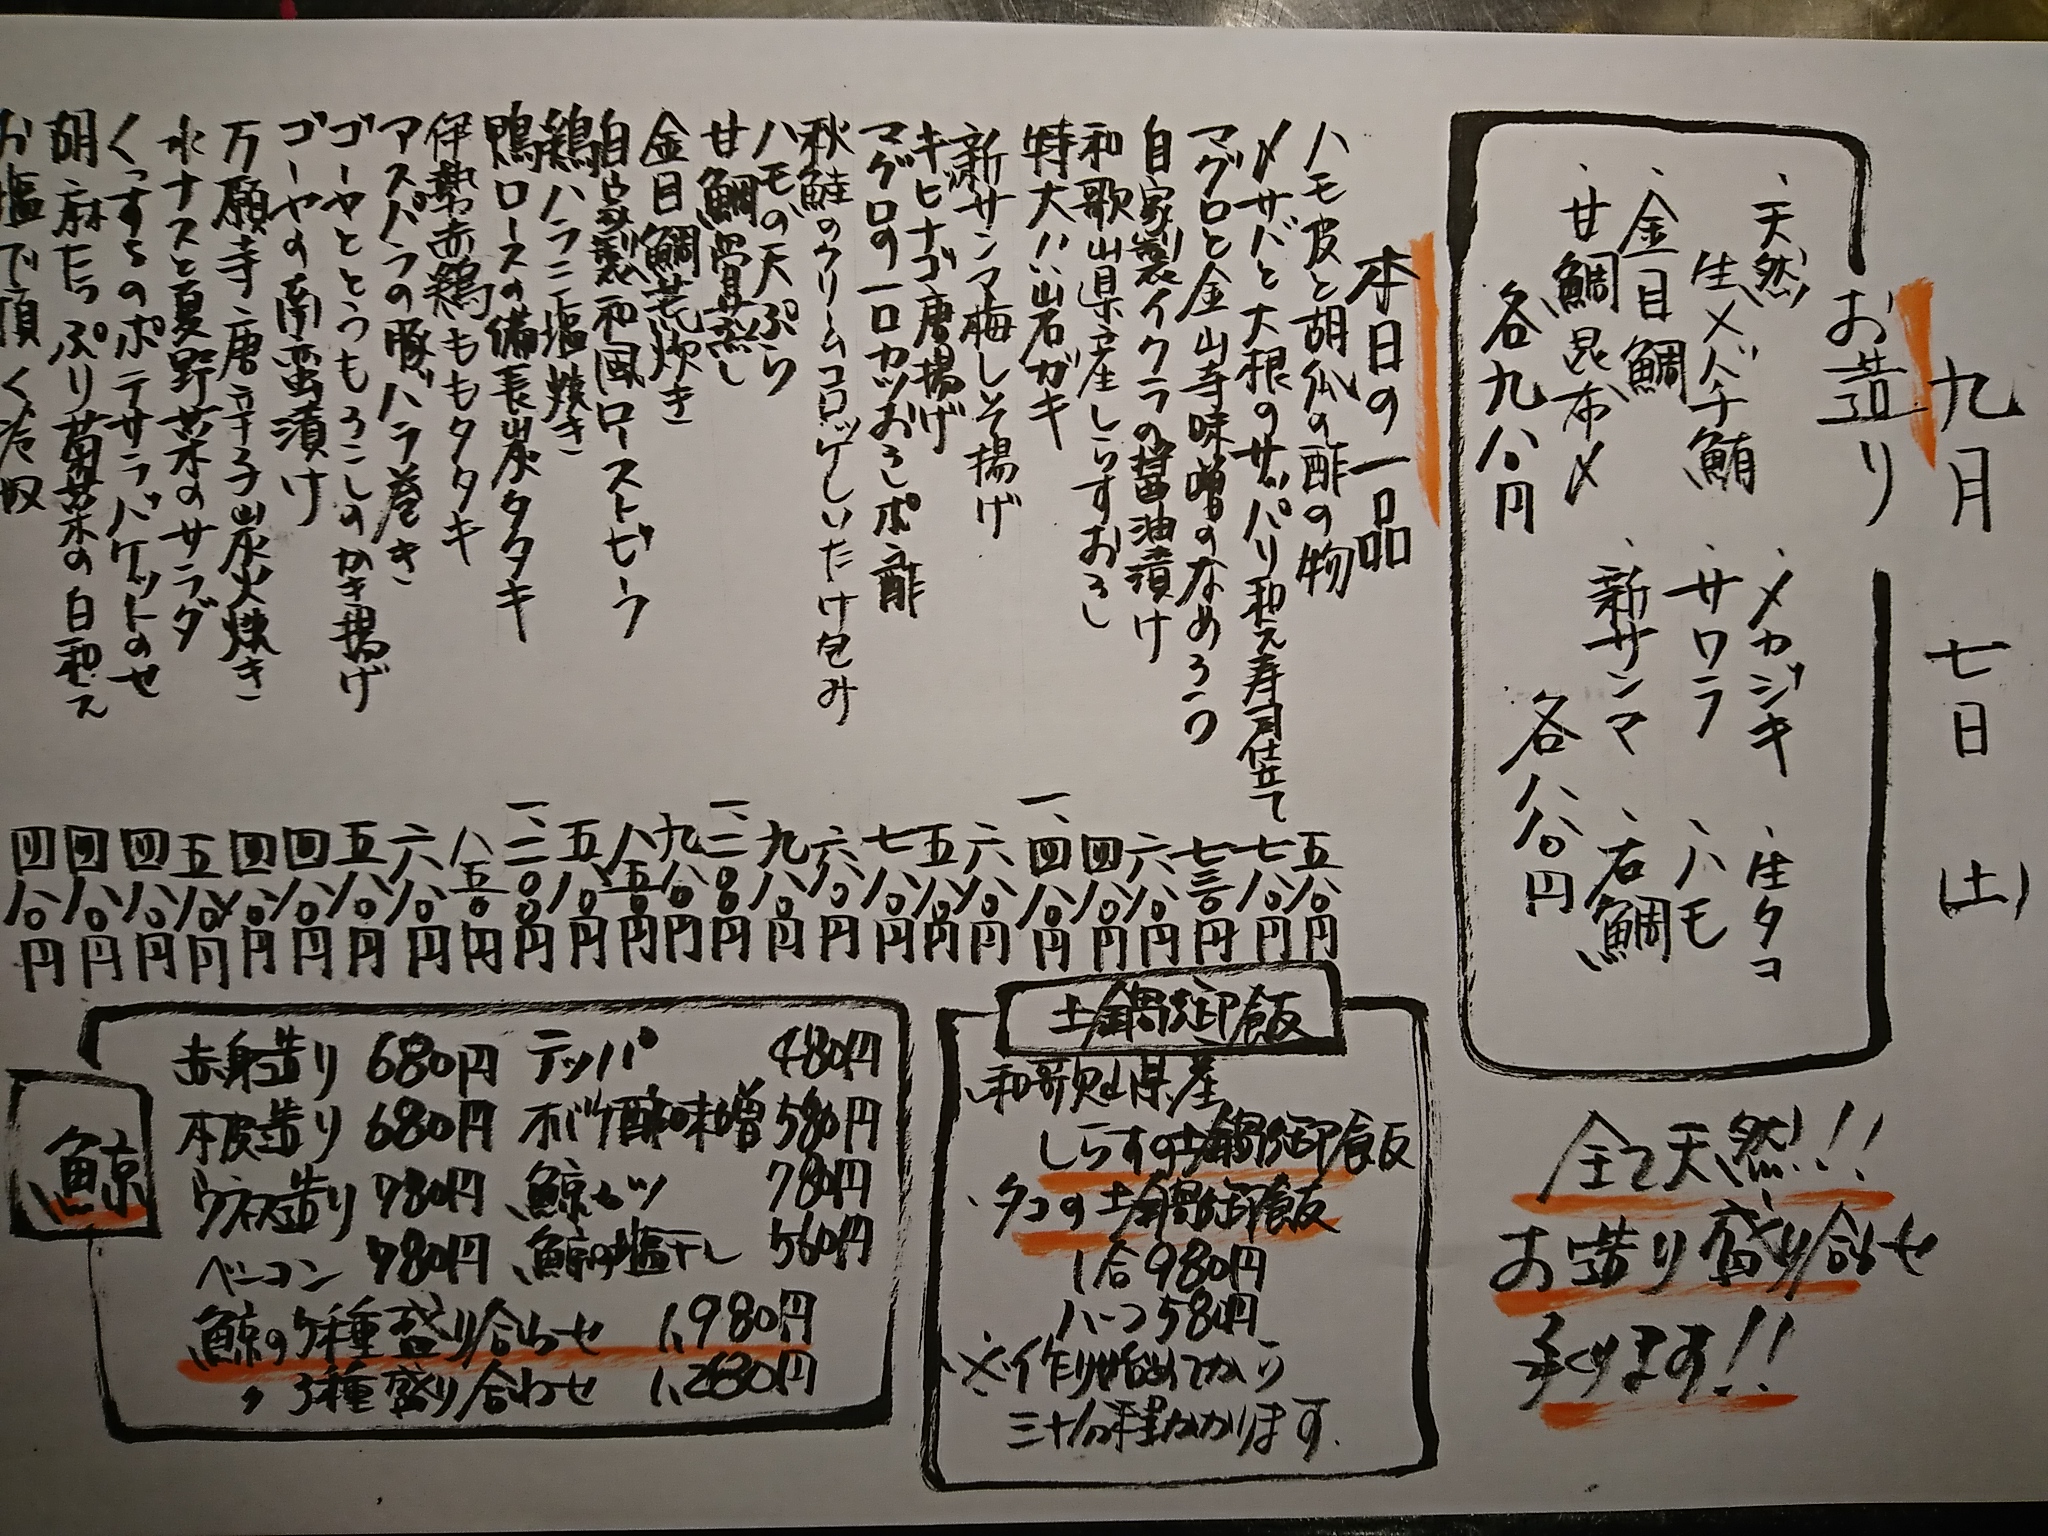 九月 七日 (土)
お造り
・天然 生メバチ鮪
・金目鯛
・甘鯛昆布〆
各九八〇円
・メカジキ
・サワラ
・新サンマ
・生タコ
・ハモ
・石鯛
各八八〇円
全て天然!!
お造り盛り合わせ
承けます!!
本日の一品
ハモ皮と胡瓜の酢の物 五八〇円
〆サバと大根のサッパリ和え寿司仕立て 七八〇円
マグロと金山寺味噌のなめろう 七三〇円
自家製イクラの醤油漬け 六八〇円
和歌山県産しらすおろし 四八〇円
特大!!岩ガキ 一、四八〇円
新サンマ梅しそ揚げ 六八〇円
キビナゴ唐揚げ 五八〇円
マグロの一口カツおろしポン酢 七八〇円
秋鮭のクリームコロッケしいたけ包み 六八〇円
ハモの天ぷら 九八〇円
甘鯛骨蒸し 一、二八〇円
金目鯛荒炊き 九八〇円
自家製和風ローストビーフ 八五〇円
鶏ハラミ塩焼き 五八〇円
鴨ロースの備長炭タタキ 一、二〇〇円
伊勢赤鶏ももタタキ 八五〇円
アスパラの豚バラ巻き 六八〇円
ゴーヤととうもろこしのかき揚げ 五八〇円
ゴーヤの南蛮漬け 四八〇円
万願寺唐辛子炭火焼き 四八〇円
水ナスと夏野菜のサラダ 五八〇円
くっすちのポテサラバケットのせ 四八〇円
胡麻たっぷり菊菜の白和え 四八〇円
お塩で頂く冷奴 四八〇円
土鍋御飯
・和歌山県産
しらすの土鍋御飯
・タコの土鍋御飯
1合 980円
ハーフ 580円
※作り始めてから
三十分程かかります.
鯨
赤身造り 680円 テッパ 480円
本皮造り 680円 オバケ酢味噌 580円
ウネス造り 780円 鯨カツ 780円
ベーコン 780円 鯨の塩干し 560円
鯨の5種盛り合わせ 1,980円
〃 3種盛り合わせ 1,280円